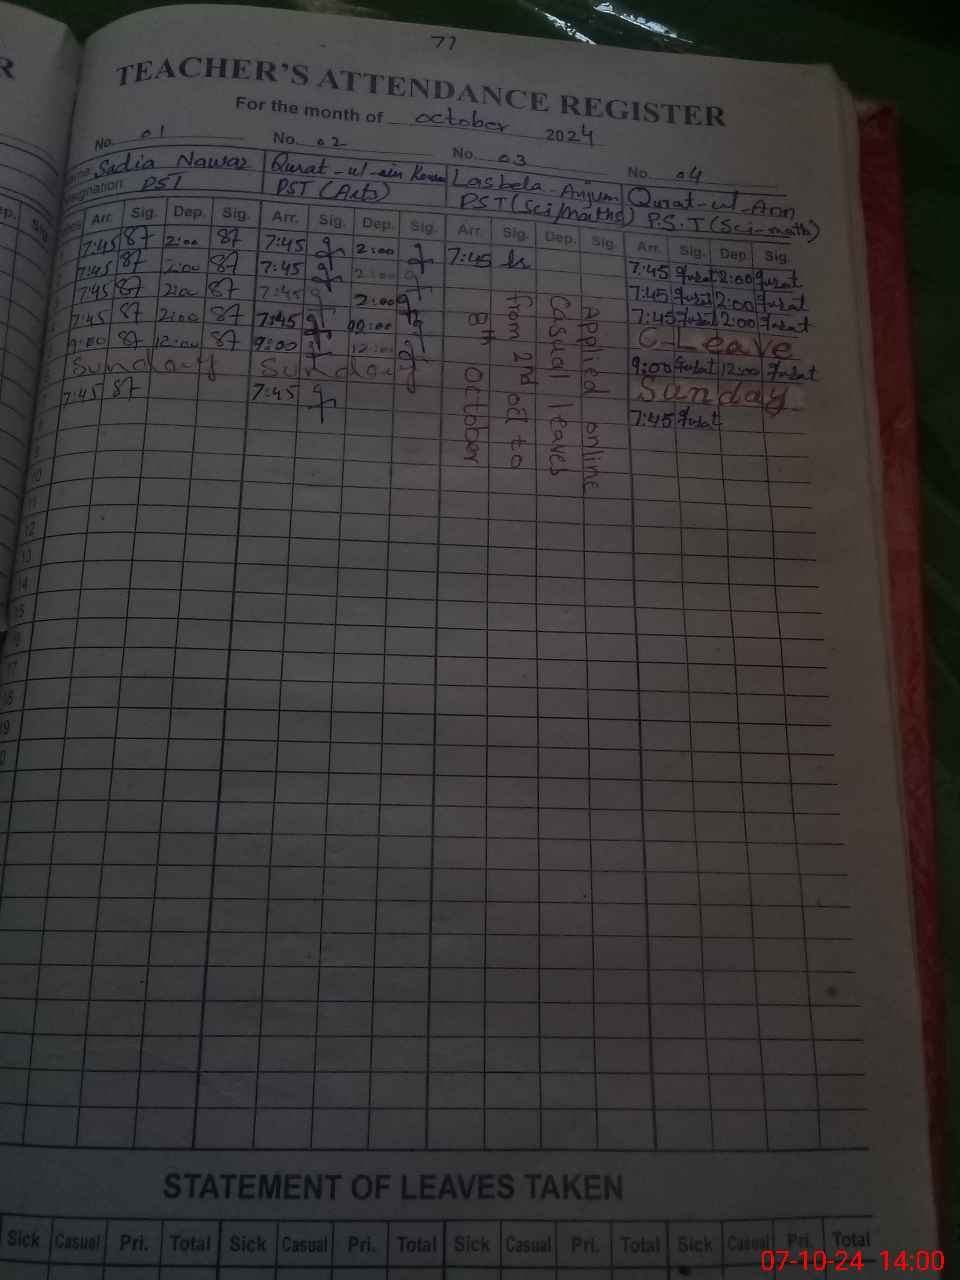 77
TEACHER'S ATTENDANCE REGISTER
For the month of october 2024
No. 01 No. 02 No. 03 No. 04
Sadia Nawaz Qurat-ul-ain Lasbela Anjum Qurat-ul-Ann
PST PST (Arts) PST (Sci/Maths) P.S.T (Sci-math)
Arr. Sig. Dep. Sig. Arr. Sig. Dep. Sig. Arr. Sig. Dep. Sig. Arr. Sig. Dep Sig.
7:45 87 2:00 87 7:45 2:00 7:45 7:45 Qurat 2:00 Qurat
7:45 87 2:00 87 7:45 2:00 7:45 Qurat 2:00 Qurat
7:45 87 2:00 87 7:45 2:00 7:45 Qurat 2:00 Qurat
7:45 87 2:00 87 7:45 02:00 C-Leave
9:00 87 12:00 87 9:00 12:00 9:00 Qurat 12:00 Qurat
Sunday Sunday Sunday
7:45 87 7:45 7:45 Qurat
Applied online
Casual leaves
from 2nd oct to
8th October
9
10
11
12
13
14
15
STATEMENT OF LEAVES TAKEN
Sick Casual Pri. Total Sick Casual Pri. Total Sick Casual Pri. Total Sick Casual Pri. Total
07-10-24 14:00